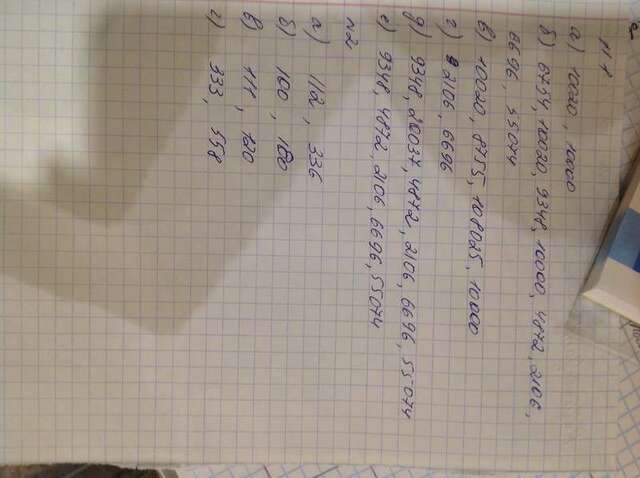 №1
а) 10020, 10000
б) 8754, 10020, 9348, 10000, 4872, 2106,
6696, 55074
в) 10020, 8735, 108025, 10000
г) 2106, 6696
д) 9348, 28037, 4872, 2106, 6696, 55074
е) 9348, 4872, 2106, 6696, 55074
№2
а) 112, 336
б) 100, 180
в) 111, 120
г) 333, 558